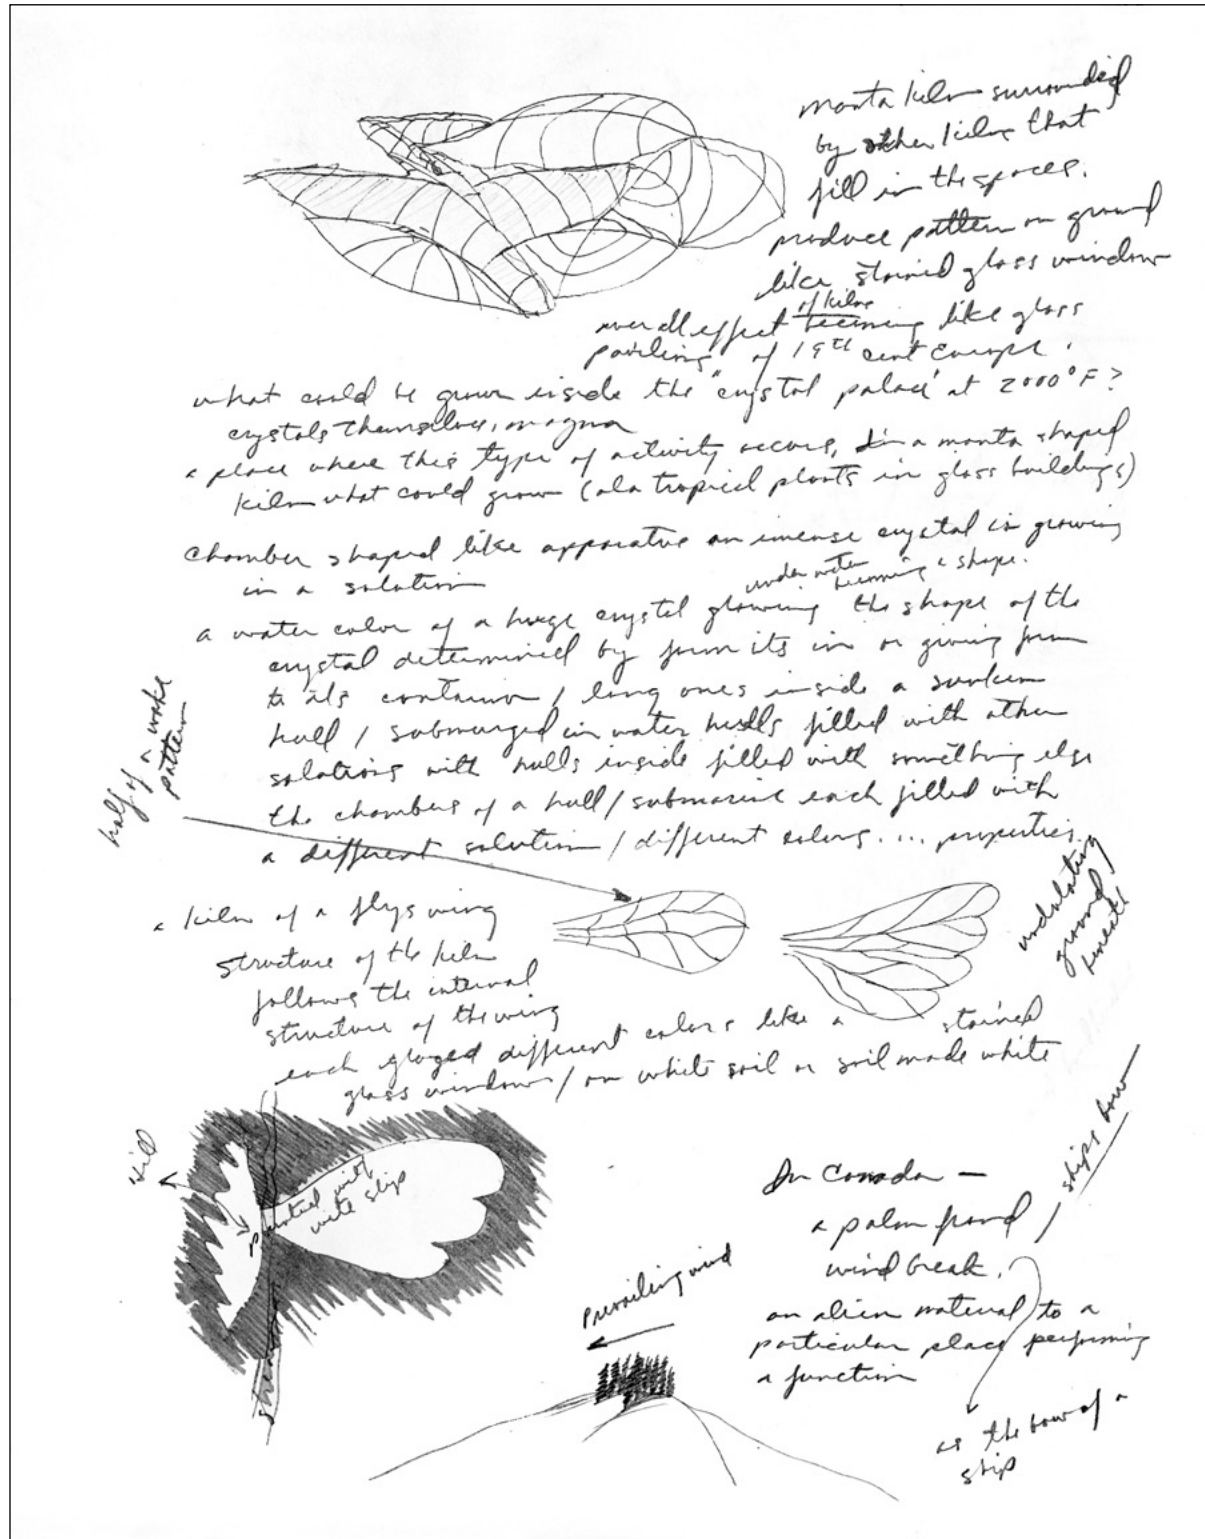 manta kiln surrounded
by other kilns that
fill in the spaces.
produce pattern on ground
like stained glass window
overall effect of kilns becoming like glass
of 19th cent Europe.
what could be grown inside the "crystal palace" at 2000°F?
crystals themselves, magma
a place where this type of activity occurs, in a manta shaped
kiln what could grow (ala tropical plants in glass buildings)
chamber shaped like apparatus an imense crystal is growing
in a solution
under water becoming a shape.
a water color of a huge crystal glowing the shape of the
crystal determined by form its in or giving form
to its container / long ones inside a sunken
hull / submurged in water hulls filled with other
solutions with hulls inside filled with something else
the chambers of a hull/submarine each filled with
a different solution / different colors.... properties
half of a wake
pattern
undulating
ground
beneath
a kiln of a flys wing
structure of the kiln
follows the internal
structure of the wing
each glazed different colors like a stained
glass window / on white soil or soil made white
painted with
wite slip
stream
prevailing wind
In Canada —
a palm frond / ships bow
wind break.
an alien material to a
particular place performing
a function
as the bow of a
ship